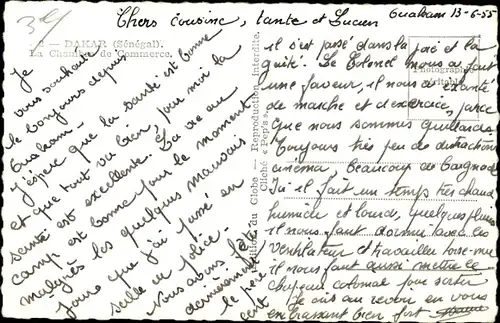 Chers cousine, tante et Lucien
Ouakam 13-6-55
2 - DAKAR (Sénégal).
La Chambre de Commerce.
Je
vous souhaite
le bonjours depuis
Ouakam -
J'espère que la santé est bonne
et que tout va bien, pour moi la
santé est excellente. La vie au
camp est bonne pour le moment
malgrés les quelques mauvais
jours que j'ai passé en
salle de police.
Nous avons fêté
dernièrement
le
cent
Editions du Globe. - Reproduction interdite.
Cliché « Pep's »
Photographie
Véritable
il s'est passé dans la joie et la
gaité. Le Colonel nous a fait
une faveur, il nous a exanté
de marche et d'exercices, parce
que nous sommes
Toujours très peu de distractions
cinéma, Beaucoup de baignade
Ici il fait un temps très chaud
humide et lourd, quelques pluies
il nous faut dormir avec le
ventilateur et travailler torse-nu
il nous faut aussi mettre le
chapeau colonial pour sortir
Je dis au revoir en vous
embrassant bien fort